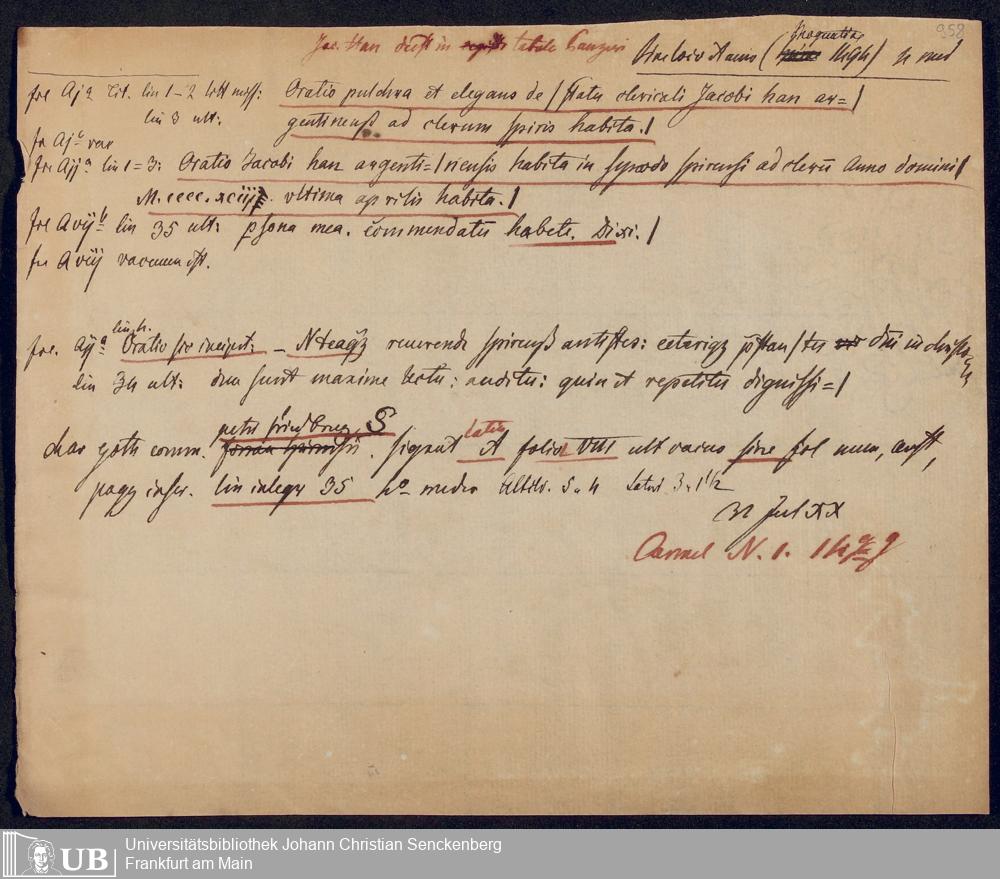 958
Jac. Han deest in tabula Panzeri
sine loco et anno (Moguntiae 1494) 4 min
fol Aja tit. lin 1–2 litt miss: Oratio pulchra et elegans de / statu clericali Jacobi han ar=/
lin 3 ult: gentinensis ad clerum spiris habita./
fo Ajb vac
fol Aija lin 1=3: Oratio Jacobi han argenti=/nensis habita in synodo spirensi ad clerū Anno domini/
M. cccc. xciiij. vltima aprilis habita./
fol Avijb lin 35 ult: psona mea. cōmendatū habete. Dixi./
fo Aviij vacuum est.
lin 4.
fol. Aija Oratio sic incipit: reuerende spirensis antistes: ceteriqz dñi in christo
lin 34 ult: dum sunt maxime lectu: auditu: quin et repetitu dignissi=/
petri friedberg S
char goth comm. signat A folia VIII ult vacuo sine fol num, cust,
pagg inscr. lin integr 35 4o medio altit. 5.4 latit 3.1 1/2
Jul XX
Carmel N. 1.
Universitätsbibliothek Johann Christian Senckenberg
Frankfurt am Main
UB